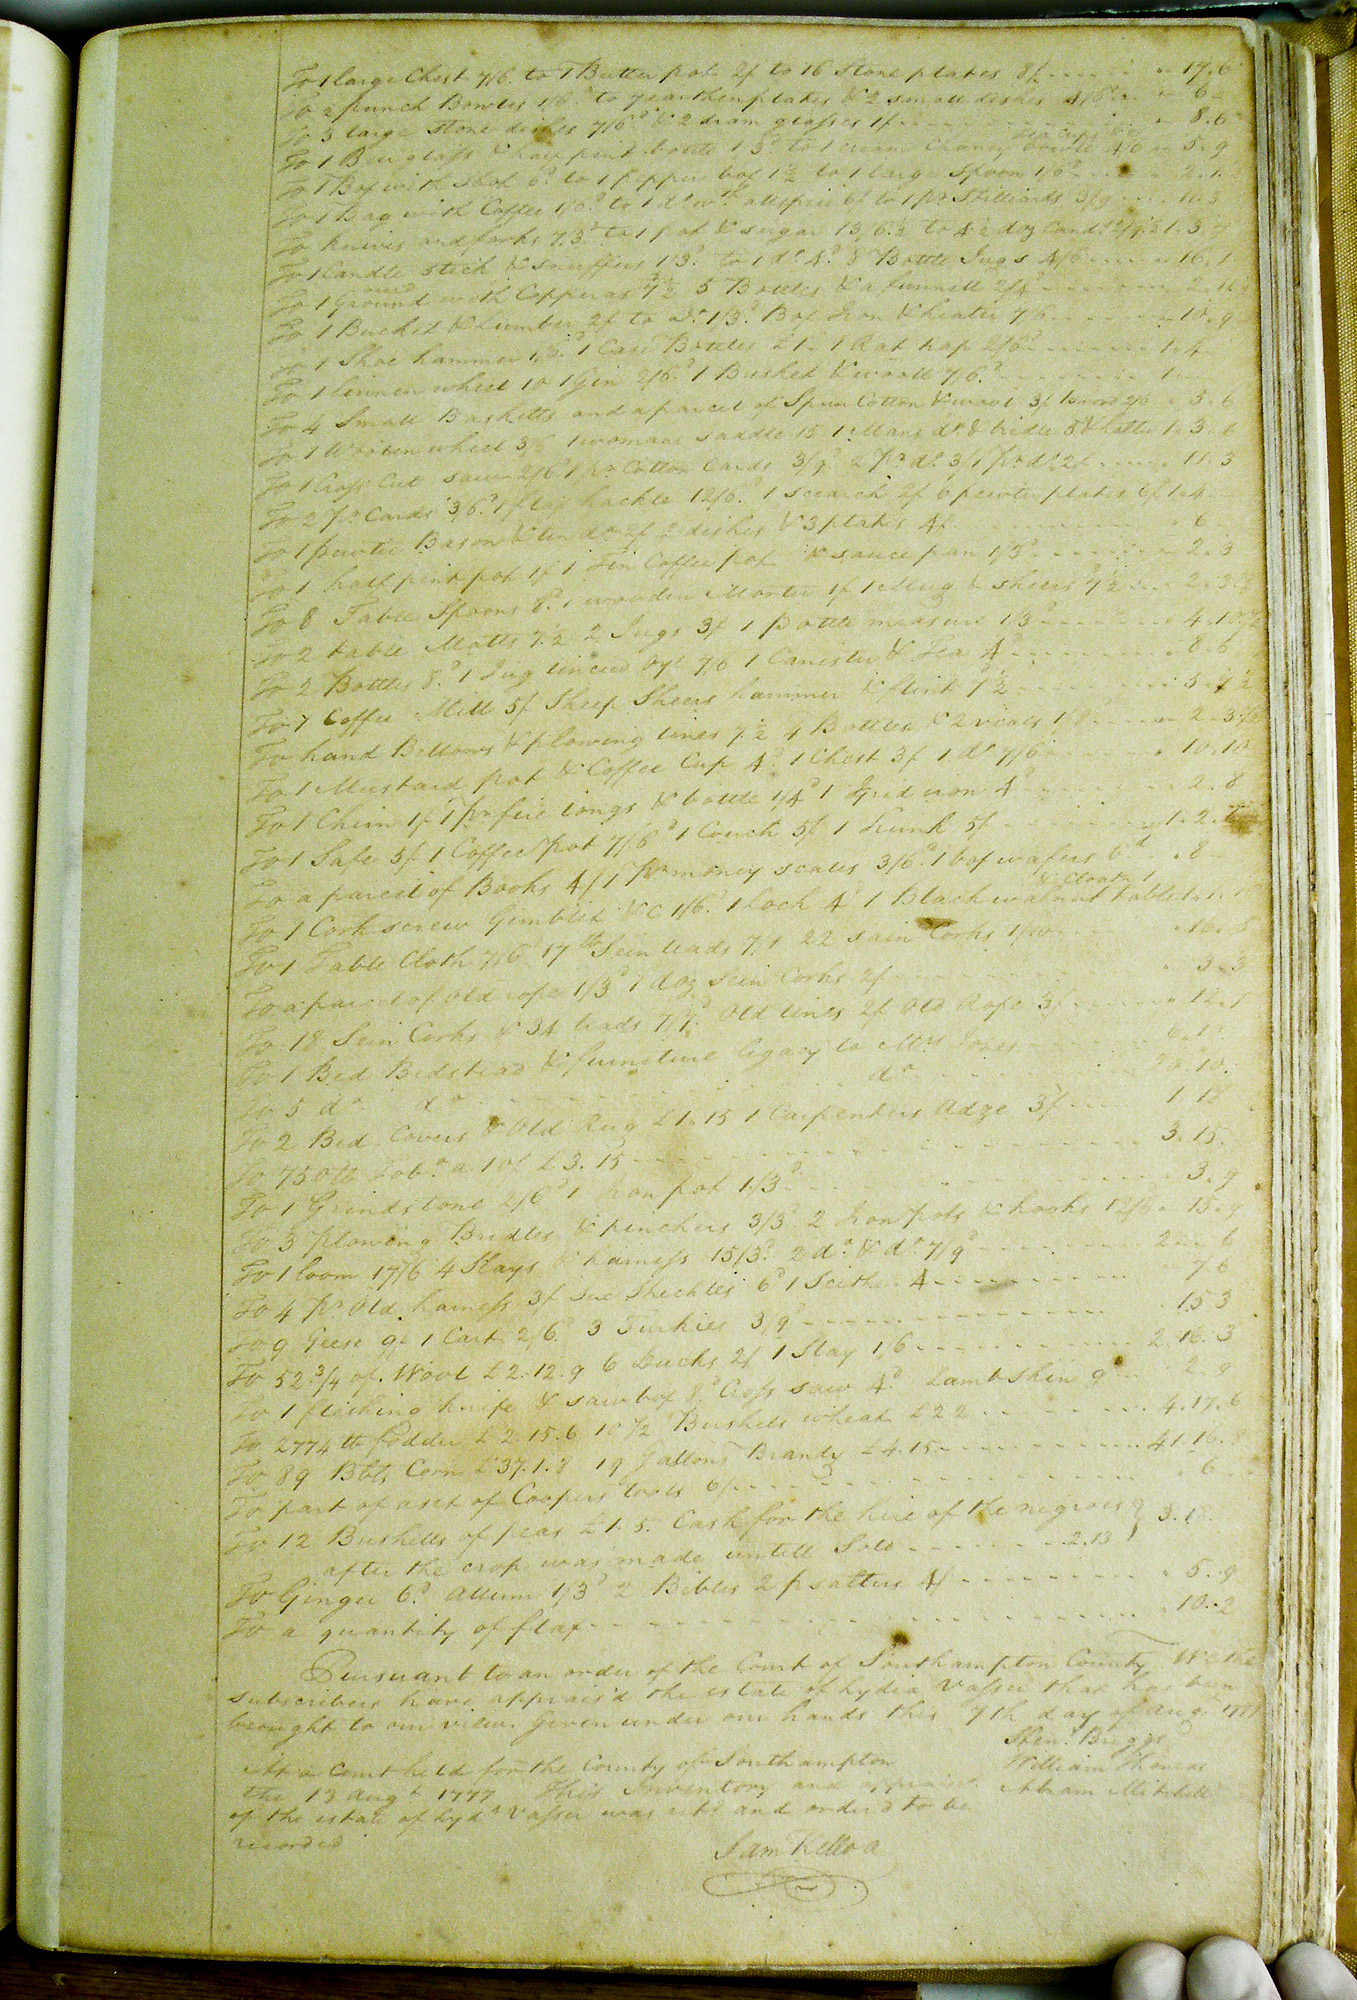 To 1 large Chest 7/6 to 1 Butter pot 2/ to 16 Stone plates 8/ 17.6
To 2 punch Bowles 1/6 to 7 earthen plates & 2 small dishes 4/6 6
To 3 large Stone dishes 7/6 & 2 dram glasses 1/ 8.6
Tea Cups &c
To 1 Beer glass & half pint bottle 1/3 to 1 cream Chaney bowle 4/6 5.9
To 1 Box with Shot 6d to 1 pepper box 1½ to 1 large Spoon 1/6 2.1½
To 1 Bag with Coffee 1/6 to 1 do wth allspice 6d to 1 pr Stilliards 3/9
To knives and forks 7.3 to 1 pot & sugar 13/6½ to 4½ doz Cands
To 1 Candle stick & snuffers 1/3 to 1 do 4d 8 Bottle Jugs 16.1
To 1 with Copperas 7½ 5 Bottles & a funnell 2/4
To 1 Bucket & Lumber 2/ to Do 1/3 Box Iron & heater 7/6 10.9
To 1 Shoe hammer 1/6 1 Case Bottles £1 1 Rat trap 2/6 1.4
To 1 linnen wheel 10 1 Gin 2/6 1 Basket & wooll 7/6 1
To 4 Small Basketts and a parcel of Spun Cotton & wool 3/ 5.6
To 1 Woolen wheel 3/6 1 womans Saddle 15 1 Mans do & bridle 5
To 1 Cross Cut saw 2/6 1 pr Cotton Cards 3/9 2 pr do 3/ 1 pr do 2/ 11.3
To 2 pr Cards 3/6 1 flax hackle 12/6 1 search 2/ 6 pewter plates 6/ 1.4
To 1 pewter Bason & ten do 2/ 2 dishes & 3 plates 4/ 6
To 1 half pint pot 1/ 1 Tin Coffee pot & sauce pan 1/3 2.3
To 8 Table Spoons 8d 1 wooden Morter 1/ 1 Mug & sheers 7½ 2.3½
To 2 table Matts 7½ 2 Jugs 3/ 1 pottle measure 1/3 4.10½
To 2 Bottles 8d 1 Jug linceed oyl 7/6 1 Canister & Tea 4d 8.6
To 7 Coffee Mill 5/ Sheep Sheers hammer & flesh 7½
To hand Bellows & plowing lines 7½ 4 Bottles & 2 vials 1/8 2.3½
To 1 Mustard pot & Coffee Cup 4d 1 Chest 3/ 1 do 7/6 10.10
To 1 Churn 1/ 1 pr fire tongs & bottle 1/4 1 Grid iron 4d 2.8
To 1 Safe 5/ 1 Coffee Pot 7/6 1 Couch 5/ 1 Trunk 5/ 1.2.6
To a parcel of Books 4/ 1 pr money scales 3/6 1 box wafers 6d 8
& Cloath 1
To 1 Cork screw Gimblet &c 1/6 1 Lock 4d 1 Black walnut table
To 1 Table Cloth 7/6 17 lb Sein leads 7/1 22 sain Corks 1/10 16.5
To a parcel of old rope 1/3 1 doz Sein Corks 2/ 3.3
To 18 Sein Corks & 34 leads 7/ Old lines 2/ Old Rope 3/ 12.5
To 1 Bed Bedstead & furniture legacy to Mrs
To 5 do do do 20.10
To 2 Bed Covers & Old Rug £1.15 1 Carpenters Adze 3/ 1.18
To 750 lb Tobo a 10/ £3.15 3.15
To 1 Grindstone 2/6 1 Iron pot 1/3 3.9
To 3 plowing Bridles & pinchers 3/3 2 Iron pots & hooks 12/6 15.9
To 1 loom 17/6 4 Slays & harness 15/3 2 do & do 7/9 2 6
To 4 pr Old harness 3/ Shickles 6d 1 Scithe 4 7.6
To 9 Geese 9/ 1 Cart 2/6 3 Turkies 3/9 15 3
To 52¾ of Wool £2.12.9 6 Ducks 2/ 1 Slay 1/6 2.16.3
To 1 fleshing knife & saw box 8d Cross saw 4d Lamb Skin 9d 2.9
To 2774 lb fodder £2.15.6 10½ Bushels wheat £2 2 4.17.6
To 89 Bbls Corn £37.1.8 19 Gallons Brandy £4.15 41.16.8
To part of a set of Coopers tools 6/ 6
To 12 Bushells of peas £1.5 Cash for the hire of the negroes } 3.18
after the crop was made untill Sold 2.13
To Ginger 6d Allum 1/3 2 Bibles 2 psalters 4/ 5.9
To a quantity of flax 10.2
Pursuant to an order of the Court of Southampton County We the
subscribers have apprais'd the estate of Lydia Vasser that has been
brought to our view. Given under our hands this 7th day of Augt 1777
Hen: Briggs
At a Court held for the County of Southampton William Thomas
the 13 Augt 1777 This Inventory and appraismt Abram Mitchell
of the estate of Lyda Vasser was retd and orderd to be
recorded
Sam Kello